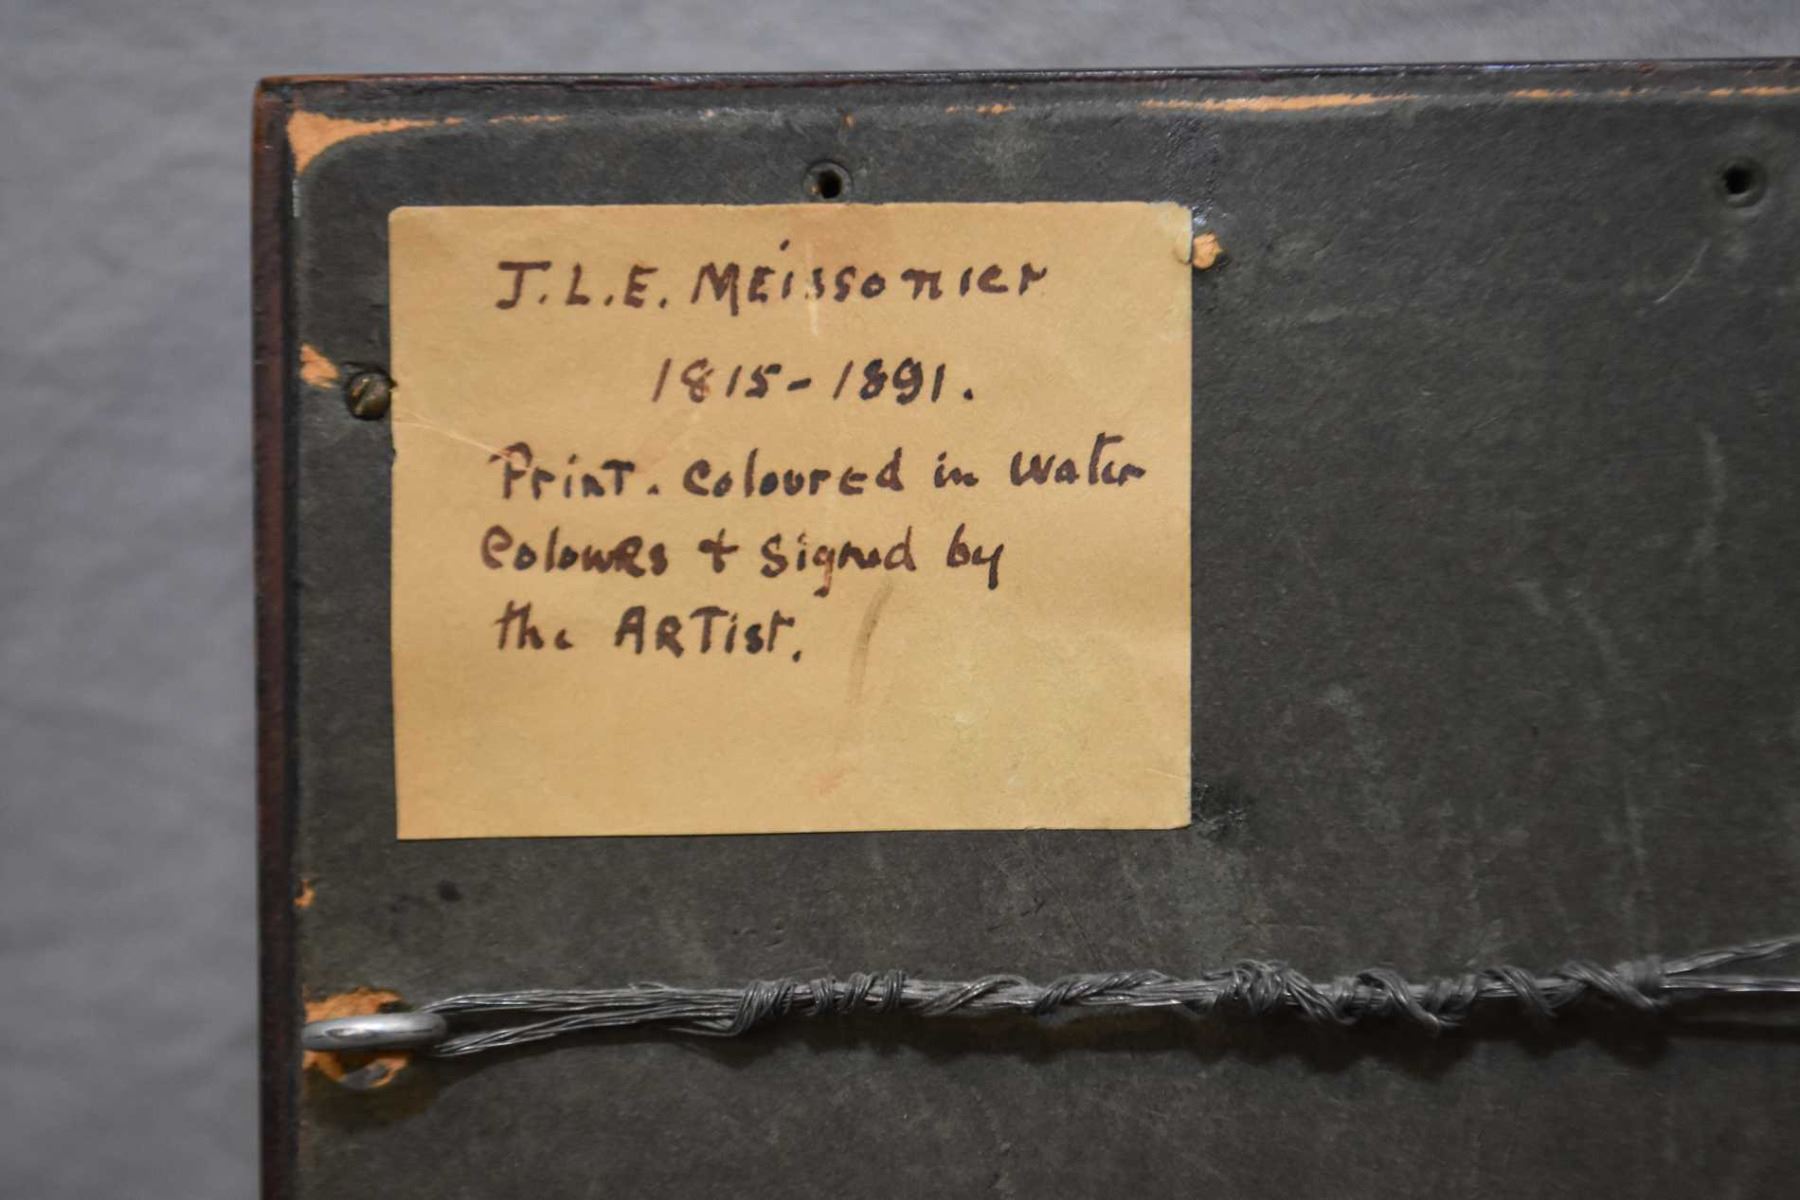 J.L.E. Meissonier
1815-1891.
Print. Coloured in water
Colours + signed by
the Artist.